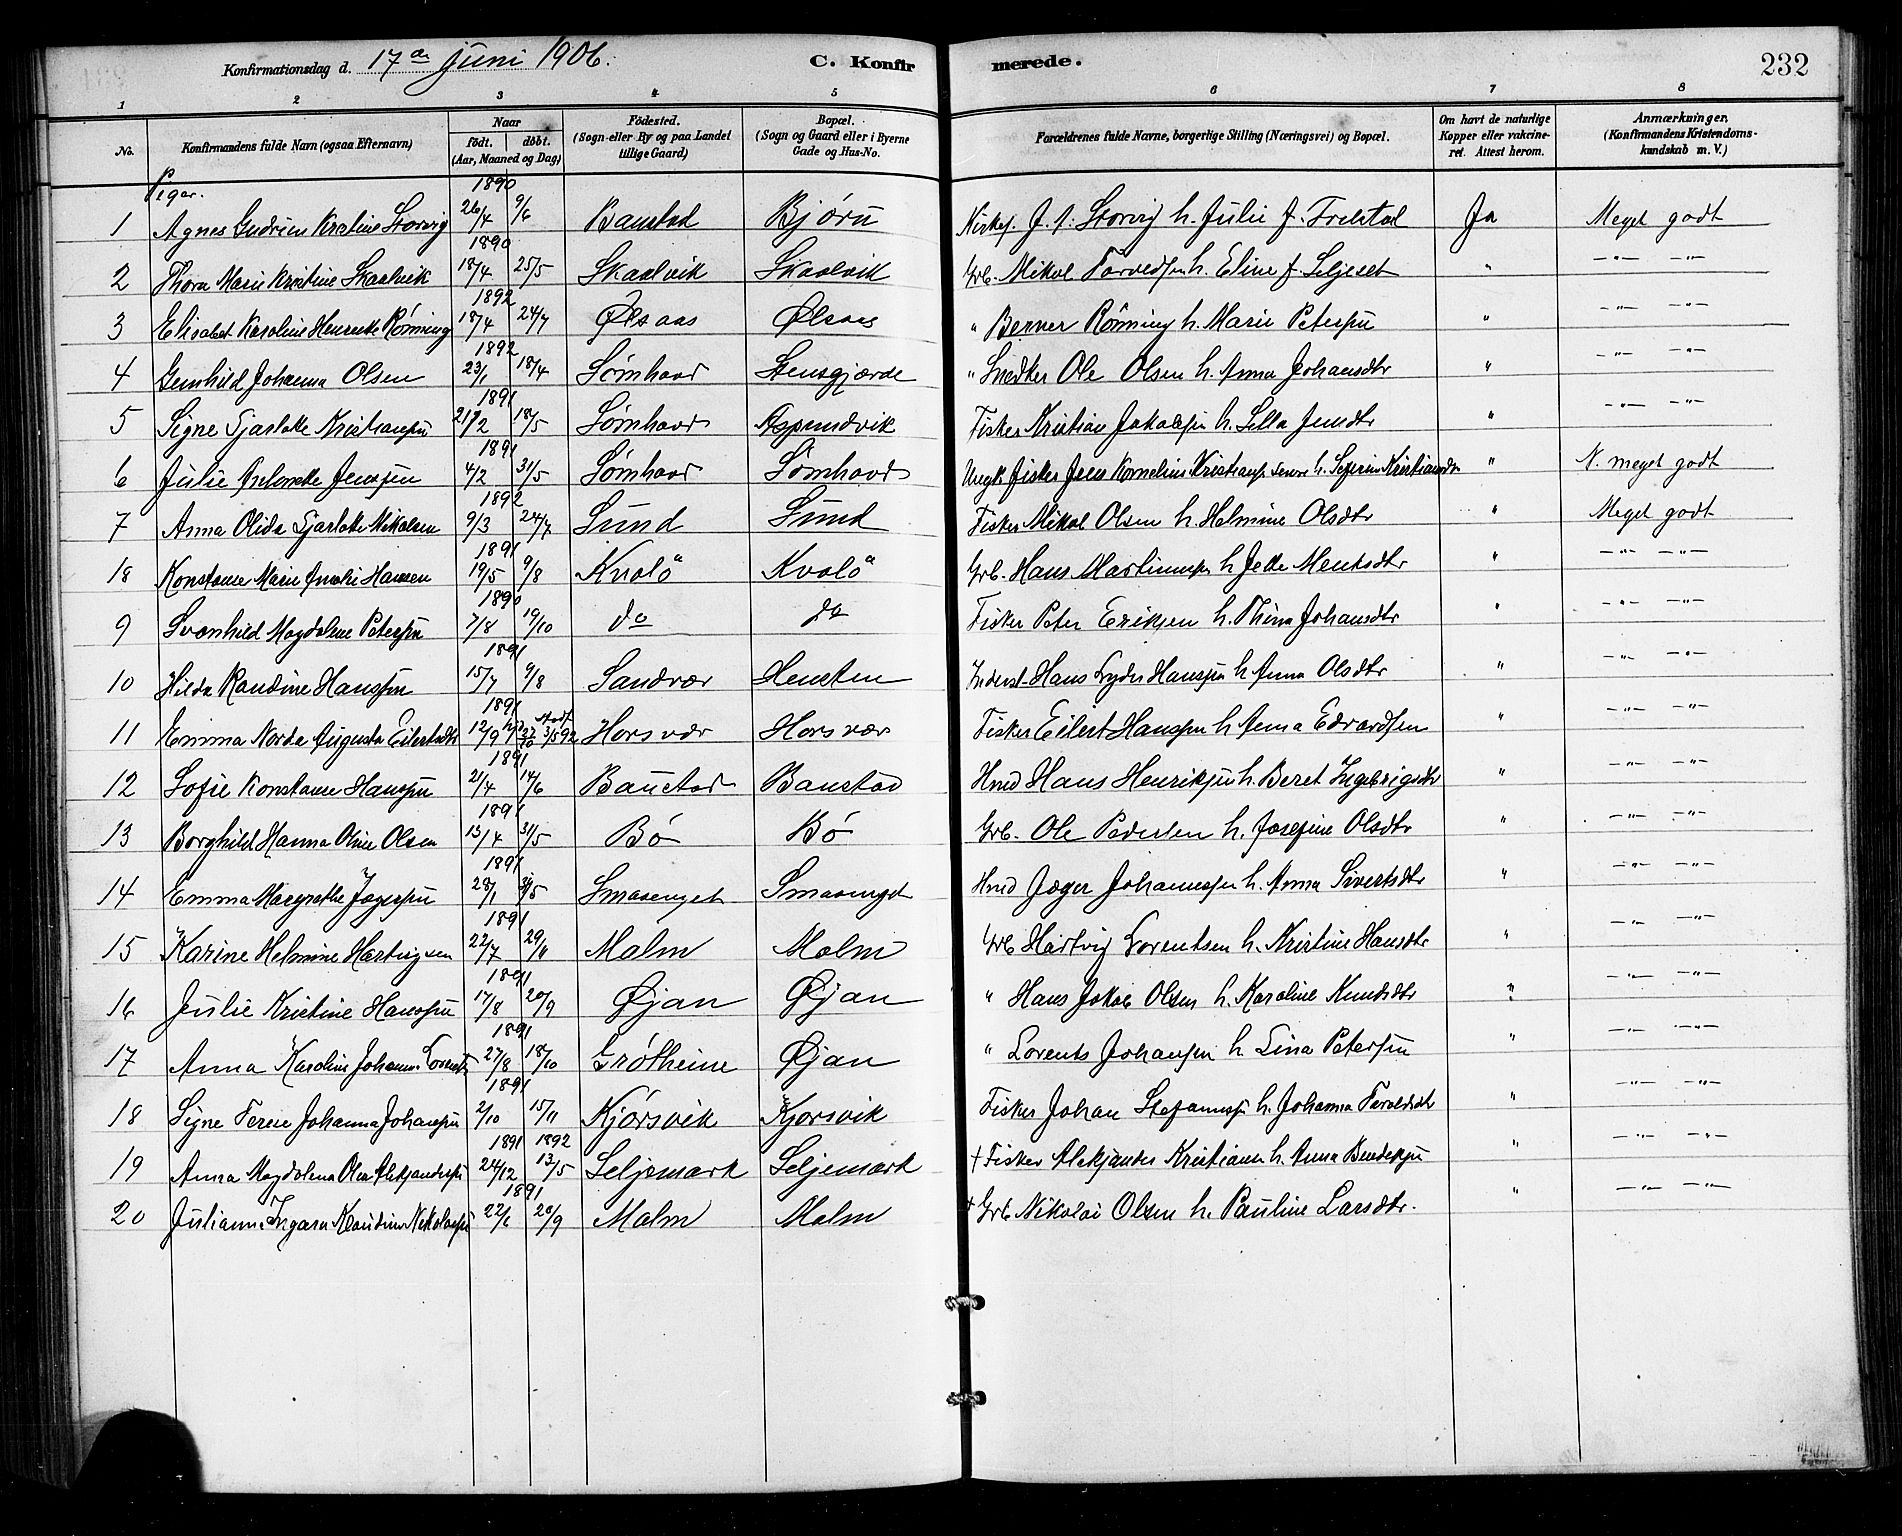 Konfirmationsdag d. 17de Juni 1906. C. Konfirmerede. 232
1 2 3 4 5 6 7 8
No. Konfirmandens fulde Navn (ogsaa Efternavn) Naar født. døbt. (Aar, Maaned og Dag) Fødested. (Sogn eller By og paa Landet tillige Gaard) Bopæl. (Sogn og Gaard eller i Byerne Gade og Hus-No. Forældrenes fulde Navne, borgerlige Stilling (Næringsvei) og Bopæl. Om havt de naturlige Kopper eller vakcineret. Attest herom. Anmærkninger. (Konfirmandens Kristendomskundskab m. V.)
Piger.
1 Agnes Gudrun Kristine Storvig 1890 26/4 9/6 Baustad Bjøru Kirkes. J. A. Storvig h. Julie f. Trelstad Ja Meget godt
2 Thora Marie Kristine Skaalvik 1890 18/4 25/5 Skaalvik Skaalvik Grb. Mikal h. Eline f. Seljeset " -"- -"-
3 Elisabet Karoline Henrikke Rønning 1892 18/4 24/7 Ølsaas Ølsaas " Berner Rønning h. Marie Petersen " -"- -"-
4 Gunhild Johanna Olsen 1892 23/1 18/4 Sømhovd Stensgjærde " Snedker Ole Olsen h. Anna Johansdtr " -"- -"-
5 Signe Sjarlotte Kristiansen 1891 21/2 18/5 Sømhovd Aspundvik Fisker Kristian Jakobsen h. Jensdtr " -"- -"-
6 Julie Jensen 1891 4/2 31/5 Sømhovd Sømhovd Ungk. fisker Jens Kornelius Kristiansen h. Seferine Kristiansdtr " N. meget godt
7 Anna Olida Sjarlotte Mikalsen 1892 9/3 24/7 Sund Sund Fisker Mikal Olsen h. Helmine Olsdtr " Meget godt
18 Konstanse Marie Amalie Hansen 1891 19/5 9/8 Kvalø Kvalø Grb. Hans Martinusen h. Jette Mentsdtr " -"- -"-
9 Svanhild Magdalene Petersen 1890 7/8 19/10 do do Fisker Peter Eriksen h. Thina Johansdtr " -"- -"-
10 Hilda Randine Hanssen 1891 15/7 9/8 Sandvær Hensten Inderst Hans Lyder Hanssen h. Anna Olsdtr " -"- -"-
11 Emma Norda Augusta Eilertsdtr 1891 12/9 27/10 3/5 92 Horsvær Horsvær Fisker Eilert Hanssen h. Anna Edvardsen " -"- -"-
12 Sofie Konstanse Hanssen 1891 21/4 14/6 Baustad Baustad Hmd Hans Henriksen h. Beret Ingebrigsdtr " -"- -"-
13 Borghild Hanna Oline Olsen 1891 13/4 31/5 Bø Bø Grb. Ole Pedersen h. Josefine Olsdtr " -"- -"-
14 Emma Margrethe Jægersen 1891 28/1 31/5 Smaaenget Smaaenget Hmd Jæger Johannesen h. Anna Sivertsdtr " -"- -"-
15 Karine Helmine Hartvigsen 1891 22/7 29/11 Malm Malm Grb Hartvig Lorentsen h. Kristine Hansdtr " -"- -"-
16 Julie Kristine Hanssen 1891 17/8 20/9 Øjan Øjan " Hans Jakob Olsen h. Karoline Knudsdtr " -"- -"-
17 Anna Karoline Johanna Lorents 1891 27/8 18/10 Grøtheine Øjan " Lorents Johansen h. Lina Petersen " -"- -"-
18 Signe Johanna Johansen 1891 2/10 15/11 Kjørsvik Kjørsvik Fisker Johan Stefansen h. Johanna " -"- -"-
19 Anna Magdalena Olea Aleksandersen 1891 1892 24/12 13/5 Seljemark Seljemark † Fisker Aleksander Kristiansen h. Anna Bendiksen " -"- -"-
20 Julianne Ingara Klaudine Nikolaisen 1891 22/6 20/9 Malm Malm † Grb Nikolai Olsen h. Pauline Larsdtr. " -"- -"-